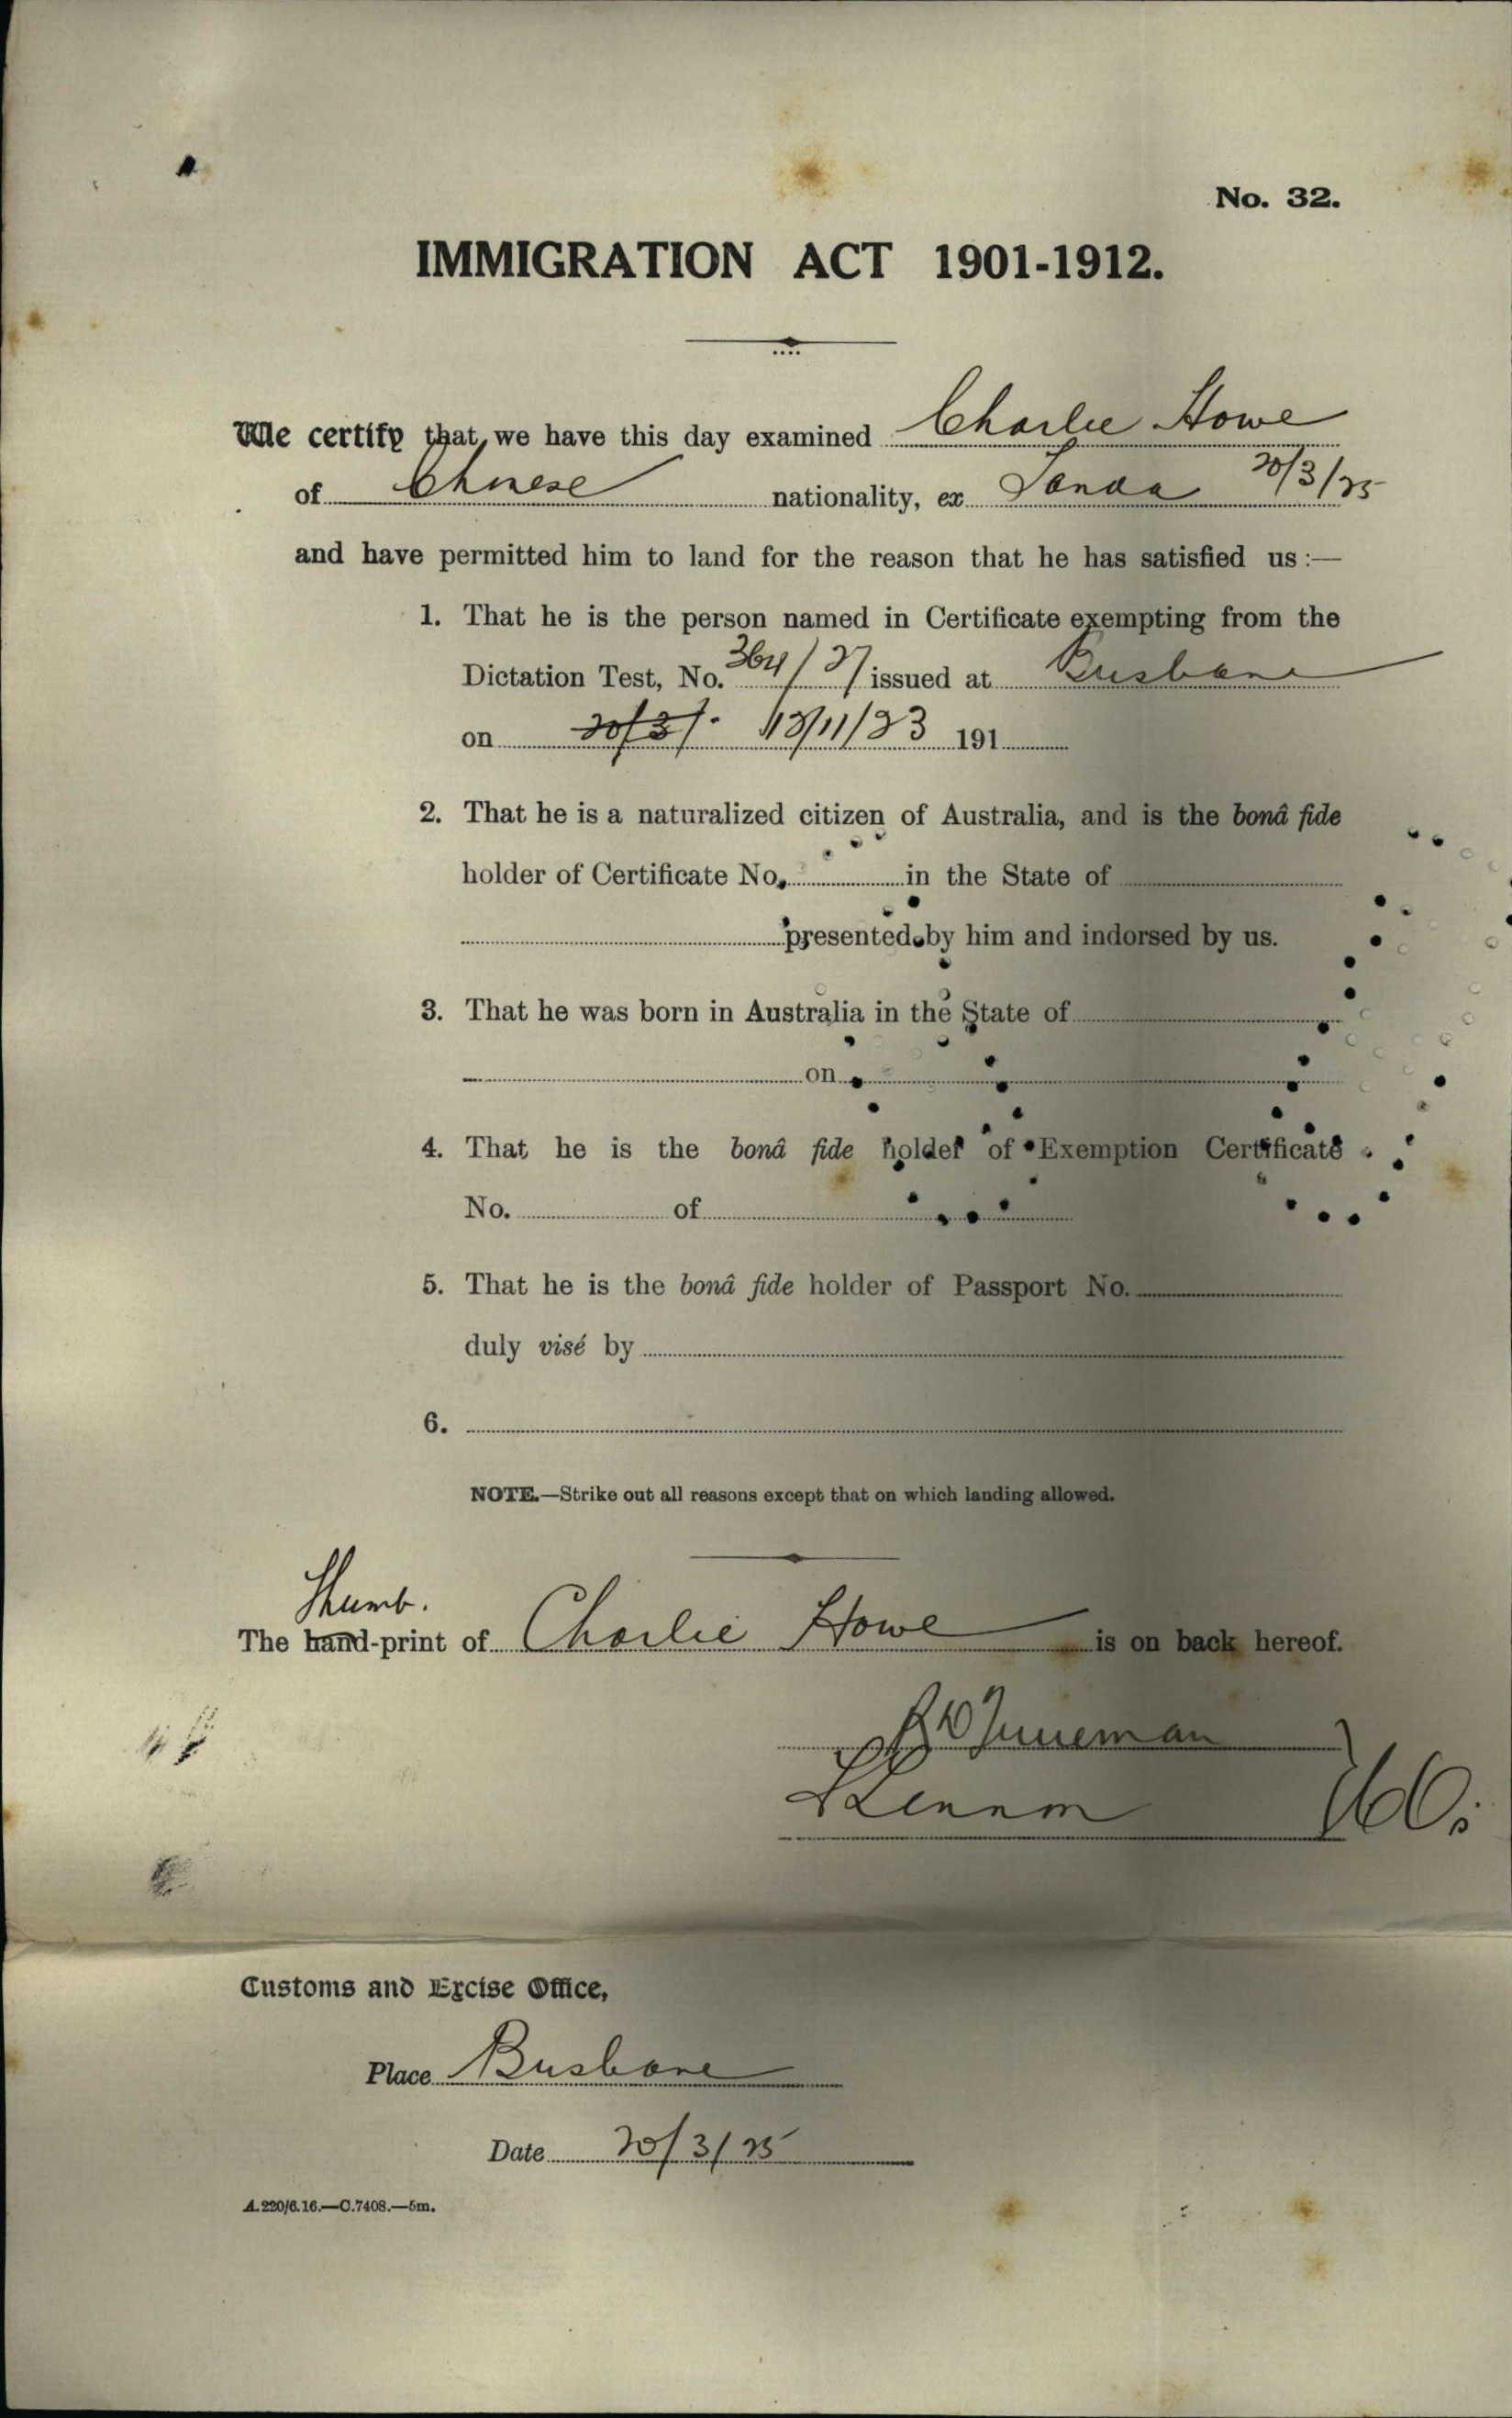 No. 32.
IMMIGRATION ACT 1901-1912.
We certify that we have this day examined Charlie Howe
of Chinese nationality, ex Tanda 20/3/25
and have permitted him to land for the reason that he has satisfied us :—
1. That he is the person named in Certificate exempting from the
Dictation Test, No. 364/27 issued at Brisbane
on 20/3/. 13/11/23 191
2. That he is a naturalized citizen of Australia, and is the bonâ fide
holder of Certificate No. in the State of
presented by him and indorsed by us.
3. That he was born in Australia in the State of
on
4. That he is the bonâ fide holder of Exemption Certificate
No. of
5. That he is the bonâ fide holder of Passport No.
duly visé by
6.
NOTE.—Strike out all reasons except that on which landing allowed.
Thumb.
The hand-print of Charlie Howe is on back hereof.
Customs and Excise Office,
Place Brisbane
Date 20/3/25
A.220/6.16.—C.7408.—5m.